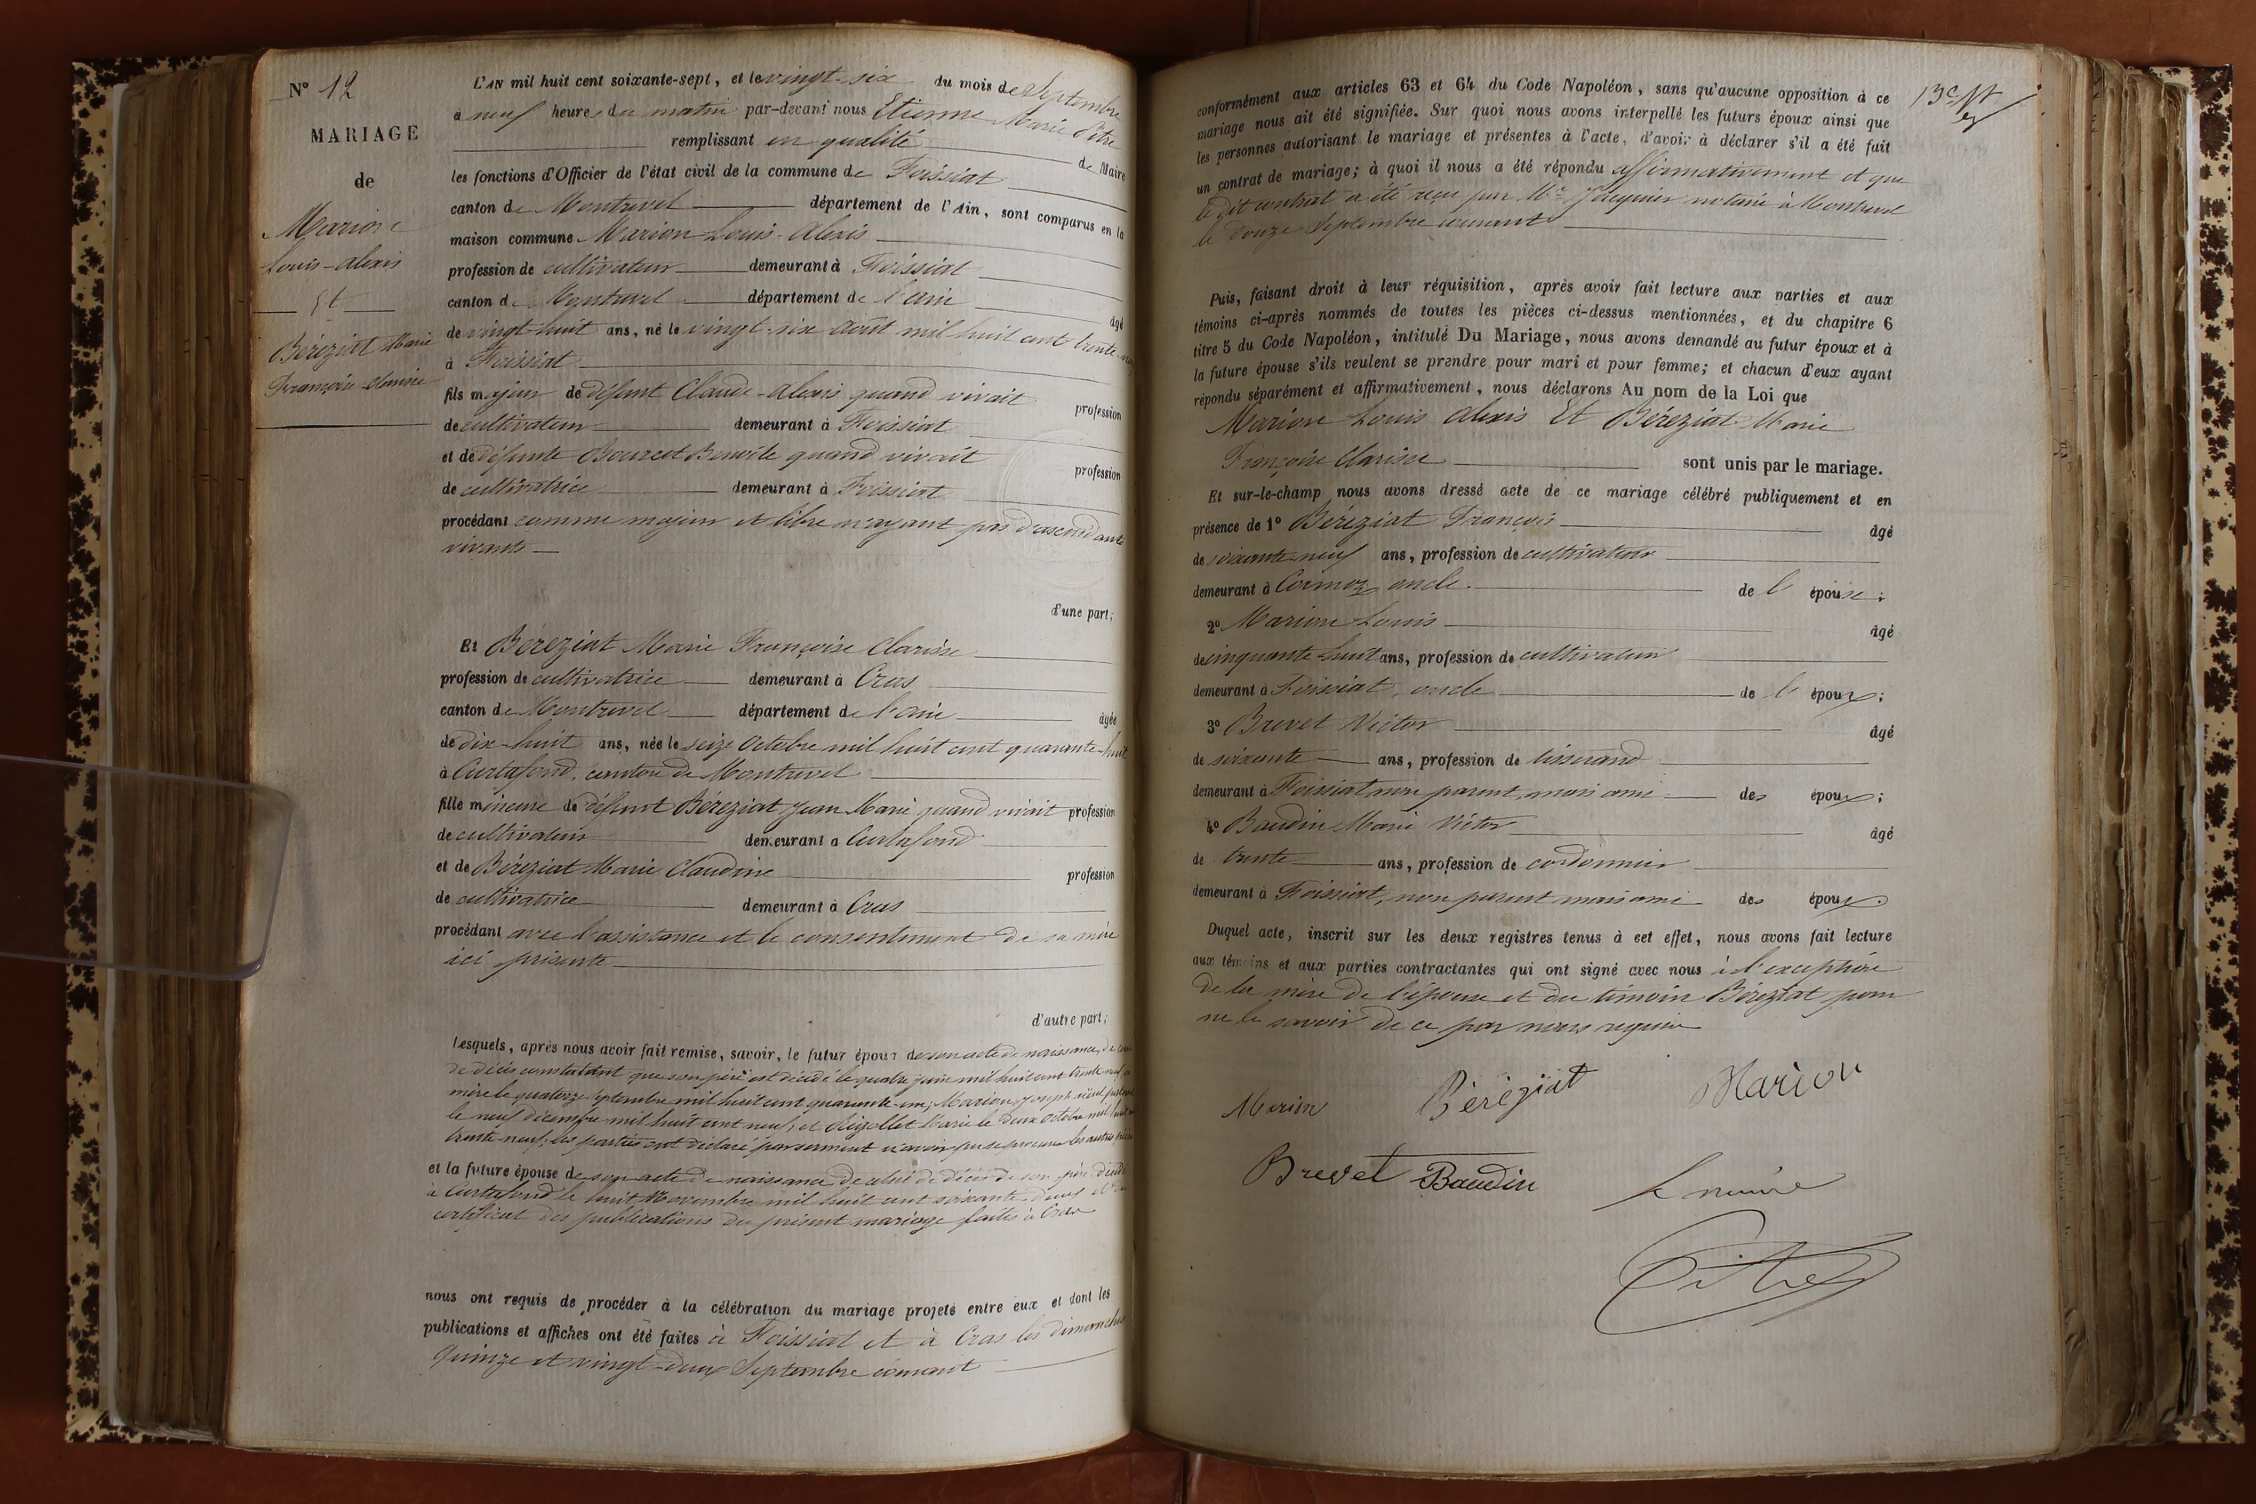 N° 12
MARIAGE
de
Marion
Louis-alexis
Et
Béréziat Marie
Françoise-Clarisse
L'AN mil huit cent soixante-sept, et le vingt-six du mois de Septembre
à neuf heures du matin par-devant nous Etienne Marie Pitre
remplissant en qualité de Maire
les fonctions d'Officier de l'état civil de la commune de Foissiat
canton de Montrevel département de l'Ain, sont comparus en la
maison commune Marion Louis-Alexis
profession de cultivateur demeurant à Foissiat
canton de Montrevel département de l'ain âgé
de vingt-huit ans, né le vingt-six août mil huit cent trente
à Foissiat
fils majeur de défunt Claude-Alexis quand vivait profession
de cultivateur demeurant à Foissiat
et de défunte Bourcet Benoîte quand vivait profession
de cultivatrice demeurant à Foissiat
procédant comme majeur et libre n'ayant pas d'ascendants
vivants
d'une part;
Et Béréziat Marie Françoise Clarisse
profession de cultivatrice demeurant à Cras
canton de Montrevel département de l'ain âgée
de dix-huit ans, née le seize Octobre mil huit cent quarante-huit
à Curtafond, canton de Montrevel
fille mineure de défunt Béréziat Jean Marie quand vivait profession
de cultivateur demeurant à Curtafond
et de Béréziat Marie Claudine profession
de cultivatrice demeurant à Cras
procédant avec l'assistance et le consentement de sa mère
ici présente
d'autre part;
Lesquels, après nous avoir fait remise, savoir, le futur époux de son acte de naissance, de
de décès constatant que son père est décédé le quatre juin mil huit cent trente neuf
mère le quatorze Septembre mil huit cent quarante-un; Marion Joseph aïeul
le neuf décembre mil huit cent neuf; et Marie le deux octobre mil huit
trente-neuf; les parties ont déclaré par serment n'avoir pu se procurer les autres
et la future épouse de son acte de naissance de celui de décès de son père décédé
à Curtafond le huit Novembre mil huit cent soixante-deux et
certificat des publications du présent mariage faites à Cras
nous ont requis de procéder à la célébration du mariage projeté entre eux et dont les
publications et affiches ont été faites à Foissiat et à Cras les dimanches
quinze et vingt-deux Septembre courant
conformément aux articles 63 et 64 du Code Napoléon, sans qu'aucune opposition à ce
mariage nous ait été signifiée. Sur quoi nous avons interpellé les futurs époux ainsi que
les personnes autorisant le mariage et présentes à l'acte, d'avoir à déclarer s'il a été fait
un contrat de mariage; à quoi il nous a été répondu affirmativement et que
le dit contrat a été reçu par Me Jacquier notaire à Montrevel
le douze Septembre courant
Puis, faisant droit à leur réquisition, après avoir fait lecture aux parties et aux
témoins ci-après nommés de toutes les pièces ci-dessus mentionnées, et du chapitre 6
titre 5 du Code Napoléon, intitulé Du Mariage, nous avons demandé au futur époux et à
la future épouse s'ils veulent se prendre pour mari et pour femme; et chacun d'eux ayant
répondu séparément et affirmativement, nous déclarons Au nom de la Loi que
Marion Louis Alexis Et Béréziat Marie
Françoise Clarisse sont unis par le mariage.
Et sur-le-champ nous avons dressé acte de ce mariage célébré publiquement et en
présence de 1° Béréziat François âgé
de soixante-neuf ans, profession de cultivateur
demeurant à Cormoz oncle de l'épouse;
2° Marion Louis âgé
de cinquante-huit ans, profession de cultivateur
demeurant à Foissiat, oncle de l'époux;
3° Brevet Victor âgé
de soixante ans, profession de tisserand
demeurant à Foissiat non parent mais ami des époux;
4° Baudin Marie Victor âgé
de trente ans, profession de cordonnier
demeurant à Foissiat, non parent mais ami des époux.
Duquel acte, inscrit sur les deux registres tenus à cet effet, nous avons fait lecture
aux témoins et aux parties contractantes qui ont signé avec nous à l'exception
de la mère de l'épouse et du témoin Béréziat pour
ne le savoir de ce par nous requis
Marion Béréziat Marion
Brevet Baudin Le maire
Pitre